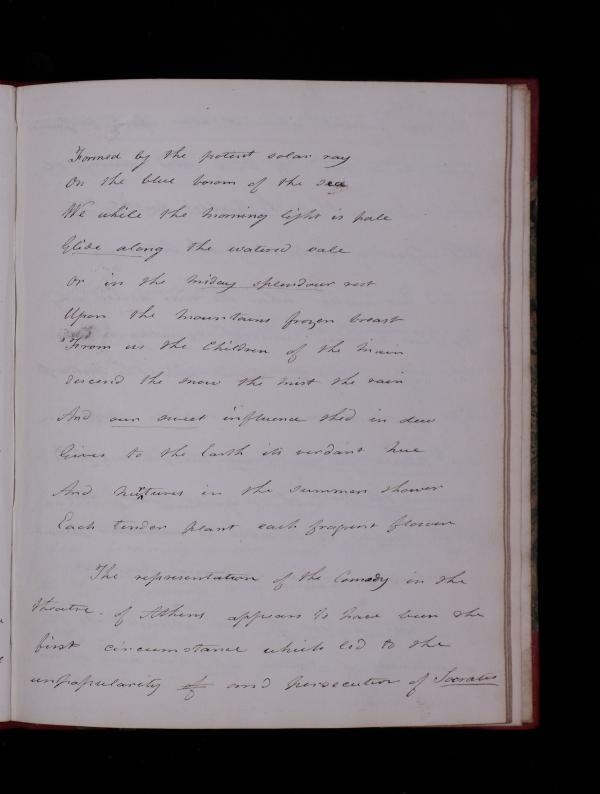 Formed by the potent solar ray
On the blue bosom of the sea
We while the morning light is pale
Glide along the watered vale
Or in the miday splendour rest
Upon the mountains frozen breast
From us the Children of the main
Descend the snow the mist the rain
And our sweet influence shed in dew
Gives to the Earth its verdant hue
And nurtures in the summers shower
Each tender plant each fragrent flower
The representation of the Comedy in the
theatre. of Athens appears to have been the
first circumstance which led to the
unpopularity of and persecution of Socrates